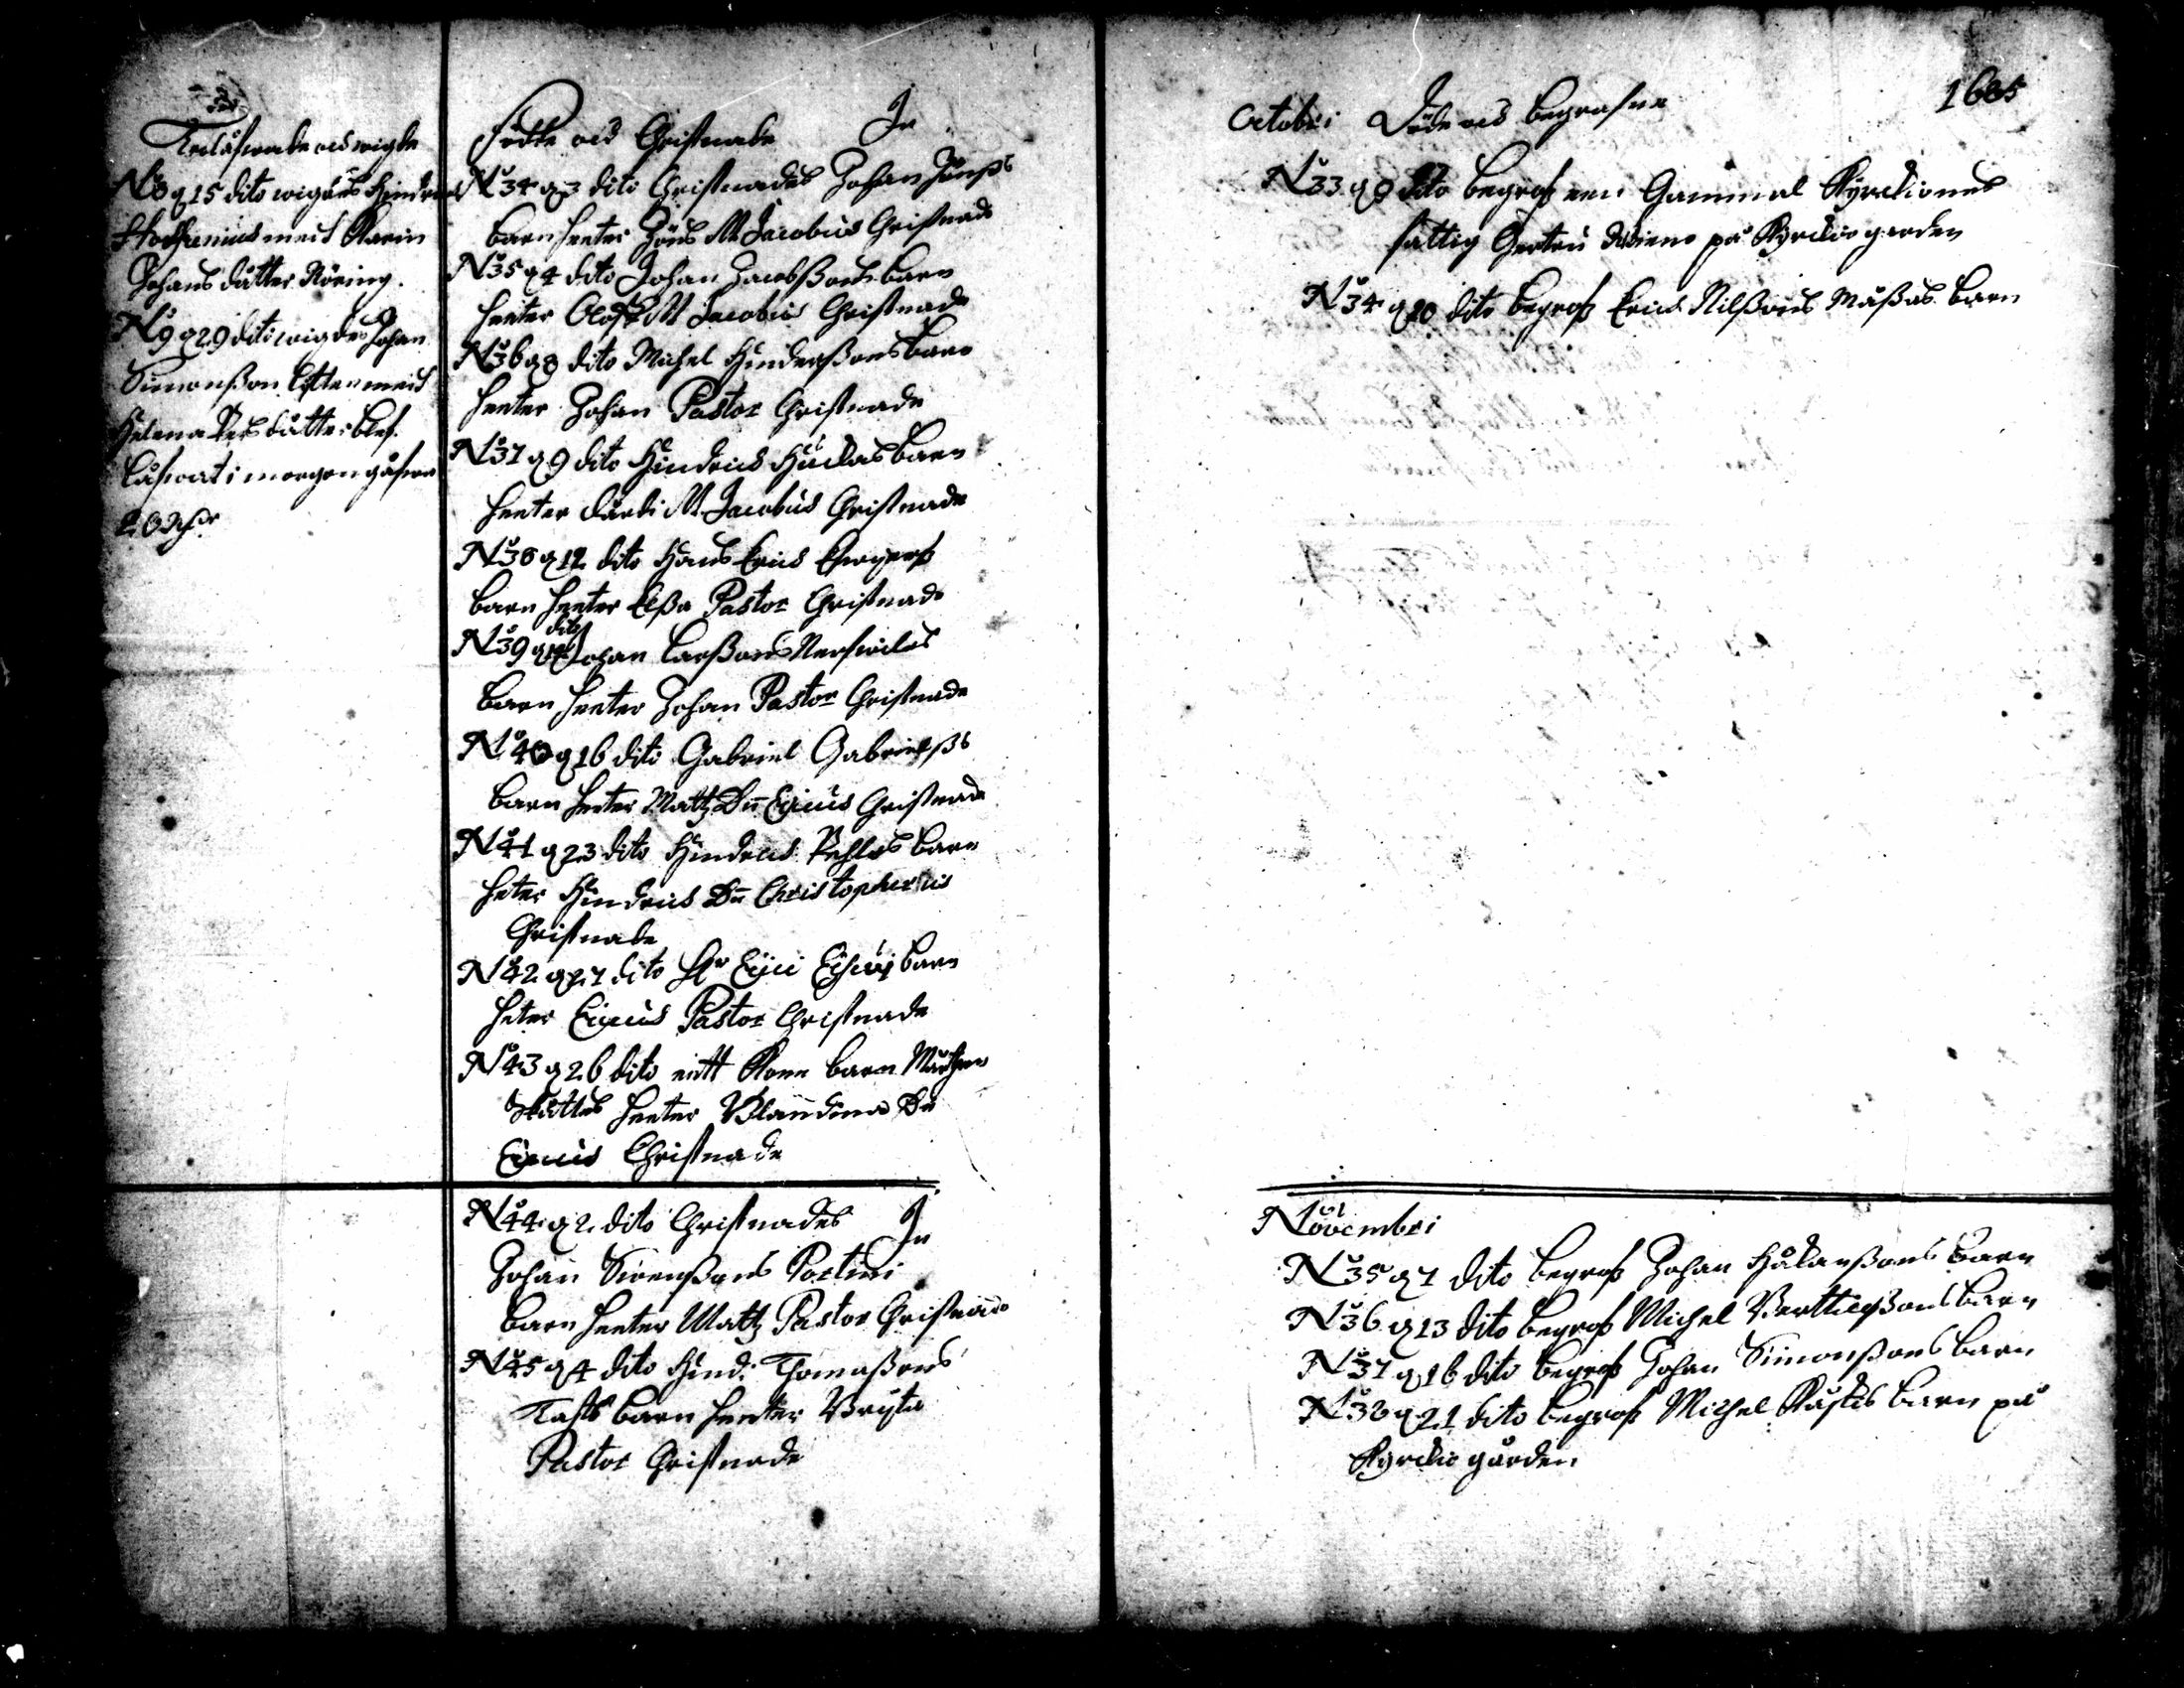 Trålåfwade och wigde
N8 g 15 dito wigdes Hindrich
med Karin
Johans dåtter Nöring.
N9 g 29 dito wigdes Johan
Simonßon med
Helena dåtter blef
låfwat i morgongåfwa
20 dr
Födde och Christnade In
N34 g 3 dito Christnades Johan Jönß
barn heeter Jöns M Jacobus Christnade
N35 g 4 dito Johan Jacobßons barn
heeter Oloff M Jacobus Christnade
N36 g 8 dito Michel Hinderßons barn
heeter Johan Pastor Christnade
N37 g 9 dito Hindrich barn
heeter M. Jacobus Christnade
N38 g 12 dito Hans Erich
barn heeter Elßa Pastor Christnade
N39 g dito Johan Larßons
barn heeter Johan Pastor Christnade
N40 g 16 dito Gabriel Gabrielßs
barn heeter Mattz Dn Ericus Christnade
N41 g 23 dito Hindrich barn
heter Hindrich Dn Christophorus
Christnade
N42 g 27 dito Hr Erici barn
heter Ericus Pastor Christnade
N43 g 26 dito eitt barn
heeter Blandina Dn
Ericus Christnade
N44 g 2 dito Christnades In
Johan Swenßons
barn heeter Mattz Pastor Christnade
N45 g 4 dito Hind: Thomaßons
barn heeter Bryta
Pastor Christnade
Octobri Döde och begrafne 1685
N33 g 9 dito begrofs een Gammal Kyrckiones
fattig Gertru på Kyrckiogården
N34 g 20 dito begrofs Erich Nilßons barn
Novembri
N35 g 7 dito begrofs Johan Håkanßons barn
N36 g 13 dito begrofs Michel Berttilßons barn
N37 g 16 dito begrofs Johan Simonßons barn
N38 g 21 dito begrofs Michel barn på
Kyrckiogården